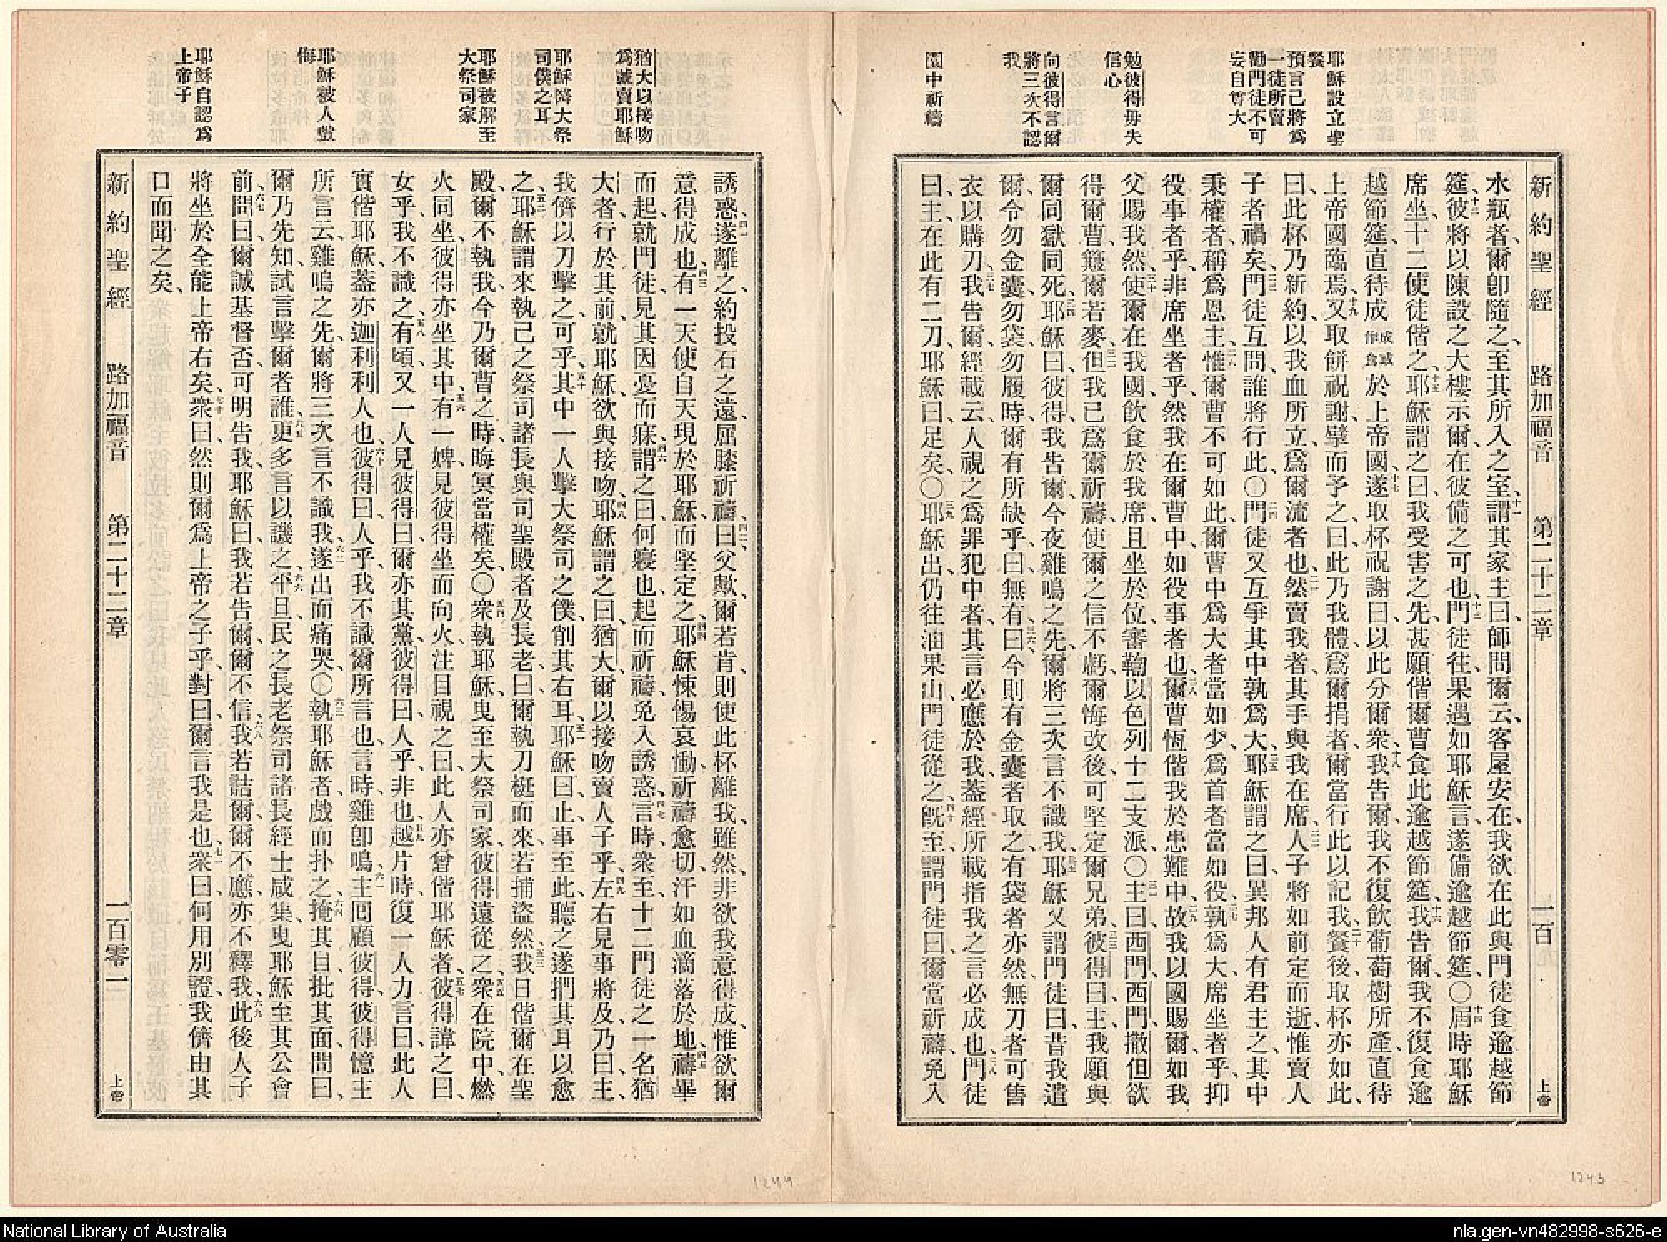 新約聖經　路加福音　第二十二章　一百　上帝
耶穌設立聖
餐
預言己將爲
一徒所賣
勸門徒不可
妄自尊大
勉彼得毋失
信心
向彼得言爾
將三次不認
我
園中祈禱
水瓶者、爾卽隨之、至其所入之室、十一謂其家主曰、師問爾云、客屋安在、我欲在此與門徒食逾越節
筵、十二彼將以陳設之大樓示爾、在彼備之可也、十三門徒往、果遇如耶穌言、遂備逾越節筵、〇十四屆時、耶穌
席坐、十二使徒偕之、十五耶穌謂之曰、我受害之先、甚願偕爾曹食此逾越節筵、十六我告爾、我不復食逾
越節筵、直待成成或作食於上帝國、十七遂取杯祝謝曰、以此分爾衆、十八我告爾、我不復飲葡萄樹所產、直待
上帝國臨焉、十九又取餅祝謝、擘而予之曰、此乃我體、爲爾捐者、爾當行此以記我、二十餐後取杯亦如此、
曰、此杯乃新約、以我血所立、爲爾流者也、二一然賣我者、其手與我在席、二二人子將如前定而逝、惟賣人
子者禍矣、二三門徒互問、誰將行此、〇二四門徒又互爭、其中孰爲大、二五耶穌謂之曰、異邦人有君主之、其中
秉權者、稱爲恩主、二六惟爾曹不可如此、爾曹中爲大者、當如少、爲首者、當如役、二七孰爲大、席坐者乎、抑
役事者乎、非席坐者乎、然我在爾曹中、如役事者也、二八爾曹恆偕我於患難中、二九故我以國賜爾、如我
父賜我然、三十使爾在我國、飲食於我席、且坐於位、審鞫以色列十二支派、〇三一主曰、西門、西門、撒但欲
得爾曹、簸爾若麥、三二但我已爲爾祈禱、使爾之信不虧、爾悔改後、可堅定爾兄弟、三三彼得曰、主、我願與
爾同獄同死、三四耶穌曰、彼得、我告爾、今夜雞鳴之先、爾將三次言不識我、三五耶穌又謂門徒曰、昔我遣
爾、令勿金囊、勿袋、勿履、時爾有所缺乎、曰、無有、三六曰、今則有金囊者取之、有袋者亦然、無刀者可售
衣以購刀、三七我告爾、經載云、人視之爲罪犯中者、其言必應於我、蓋經所載指我之言必成也、三八門徒
曰、主、在此有二刀、耶穌曰、足矣、〇三九耶穌出、仍往油果山、門徒從之、四十旣至、謂門徒曰、爾當祈禱、免入
猶大以接吻
爲識賣耶穌
耶穌醫大祭
司僕之耳
耶穌被解至
大祭司家
耶穌被人戲
侮
耶穌自認爲
上帝子
誘惑、四一遂離之、約投石之遠、屈膝祈禱曰、四二父歟、爾若肯、則使此杯離我、雖然、非欲我意得成、惟欲爾
意得成也、四三有一天使自天現於耶穌、而堅定之、四四耶穌悚惕哀慟、祈禱愈切、汗如血滴落於地、四五禱畢
而起、就門徒、見其因憂而寐、四六謂之曰、何寢也、起而祈禱、免入誘惑、四七言時、衆至、十二門徒之一、名猶
大者、行於其前、就耶穌、欲與接吻、四八耶穌謂之曰、猶大、爾以接吻賣人子乎、四九左右見事將及、乃曰、主、
我儕以刀擊之可乎、五十其中一人擊大祭司之僕、削其右耳、五一耶穌曰、止、事至此、聽之、遂捫其耳以愈
之、五二耶穌謂來執己之祭司諸長、與司聖殿者、及長老曰、爾執刀梃而來、若捕盜然、五三我日偕爾在聖
殿、爾不執我、今乃爾曹之時、晦冥當權矣、〇五四衆執耶穌、曳至大祭司家、彼得遠從之、五五衆在院中燃
火同坐、彼得亦坐其中、五六有一婢、見彼得坐而向火、注目視之曰、此人亦曾偕耶穌者、五七彼得諱之曰、
女乎、我不識之、五八有頃、又一人見彼得曰、爾亦其黨、彼得曰、人乎、非也、五九越片時、復一人力言曰、此人
實偕耶穌、蓋亦迦利利人也、六十彼得曰、人乎、我不識爾所言也、言時、雞卽鳴、六一主囘顧彼得、彼得憶主
所言云、雞鳴之先、爾將三次言不識我、六二遂出而痛哭、〇六三執耶穌者、戲而扑之、六四掩其目、批其面、問曰、
爾乃先知、試言擊爾者誰、六五更多言以譏之、六六平旦、民之長老、祭司諸長、經士咸集、曳耶穌至其公會
前、六七問曰、爾誠基督否、可明告我、耶穌曰、我若告爾、爾不信、六八我若詰爾、爾不應、亦不釋我、六九此後人子
將坐於全能上帝右矣、七十衆曰、然則爾爲上帝之子乎、對曰、爾言我是也、七一衆曰、何用別證、我儕由其
口而聞之矣、
新約聖經　路加福音　第二十二章　一百零一　上帝
1244　1243
National Library of Australia　nla.gen-vn482998-s626-e